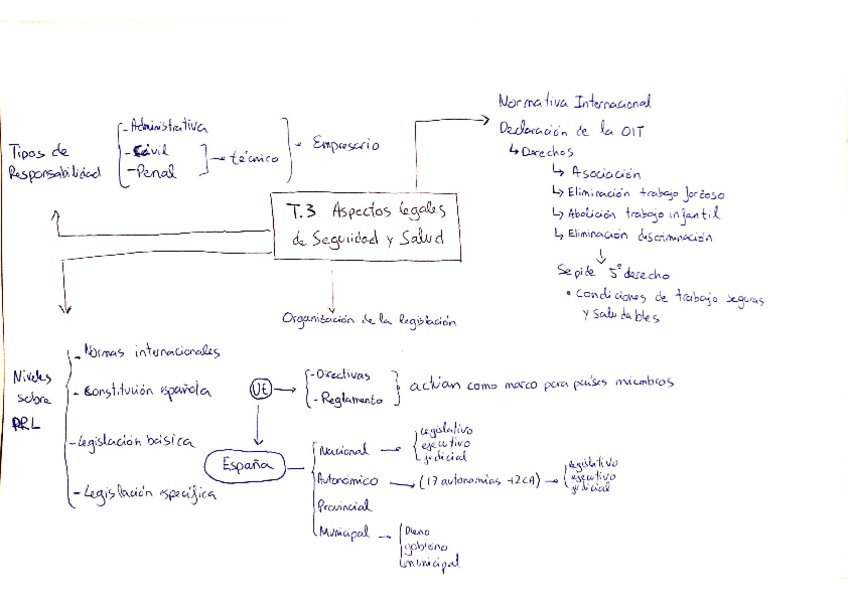 Normativa Internacional
Declaración de la OIT
↳ Derechos
↳ Asociación
↳ Eliminación trabajo forzoso
↳ Abolición trabajo infantil
↳ Eliminación discriminación
Se pide 5º derecho
• Condiciones de trabajo seguras
y saludables
Tipos de
Responsabilidad
- Administrativa
- Civil
- Penal
técnico
- Empresario
T.3 Aspectos legales
de Seguridad y Salud
Organización de la legislación
Niveles
sobre
PRL
- Normas internacionales
- Constitución española
- Legislación básica
- Legislación específica
UE
- Directivas
- Reglamento
actúan como marco para países miembros
España
Nacional
legislativo
ejecutivo
judicial
Autonómico
(17 autonomías + 2CA)
legislativo
ejecutivo
judicial
Provincial
Municipal
Pleno
gobierno
municipal